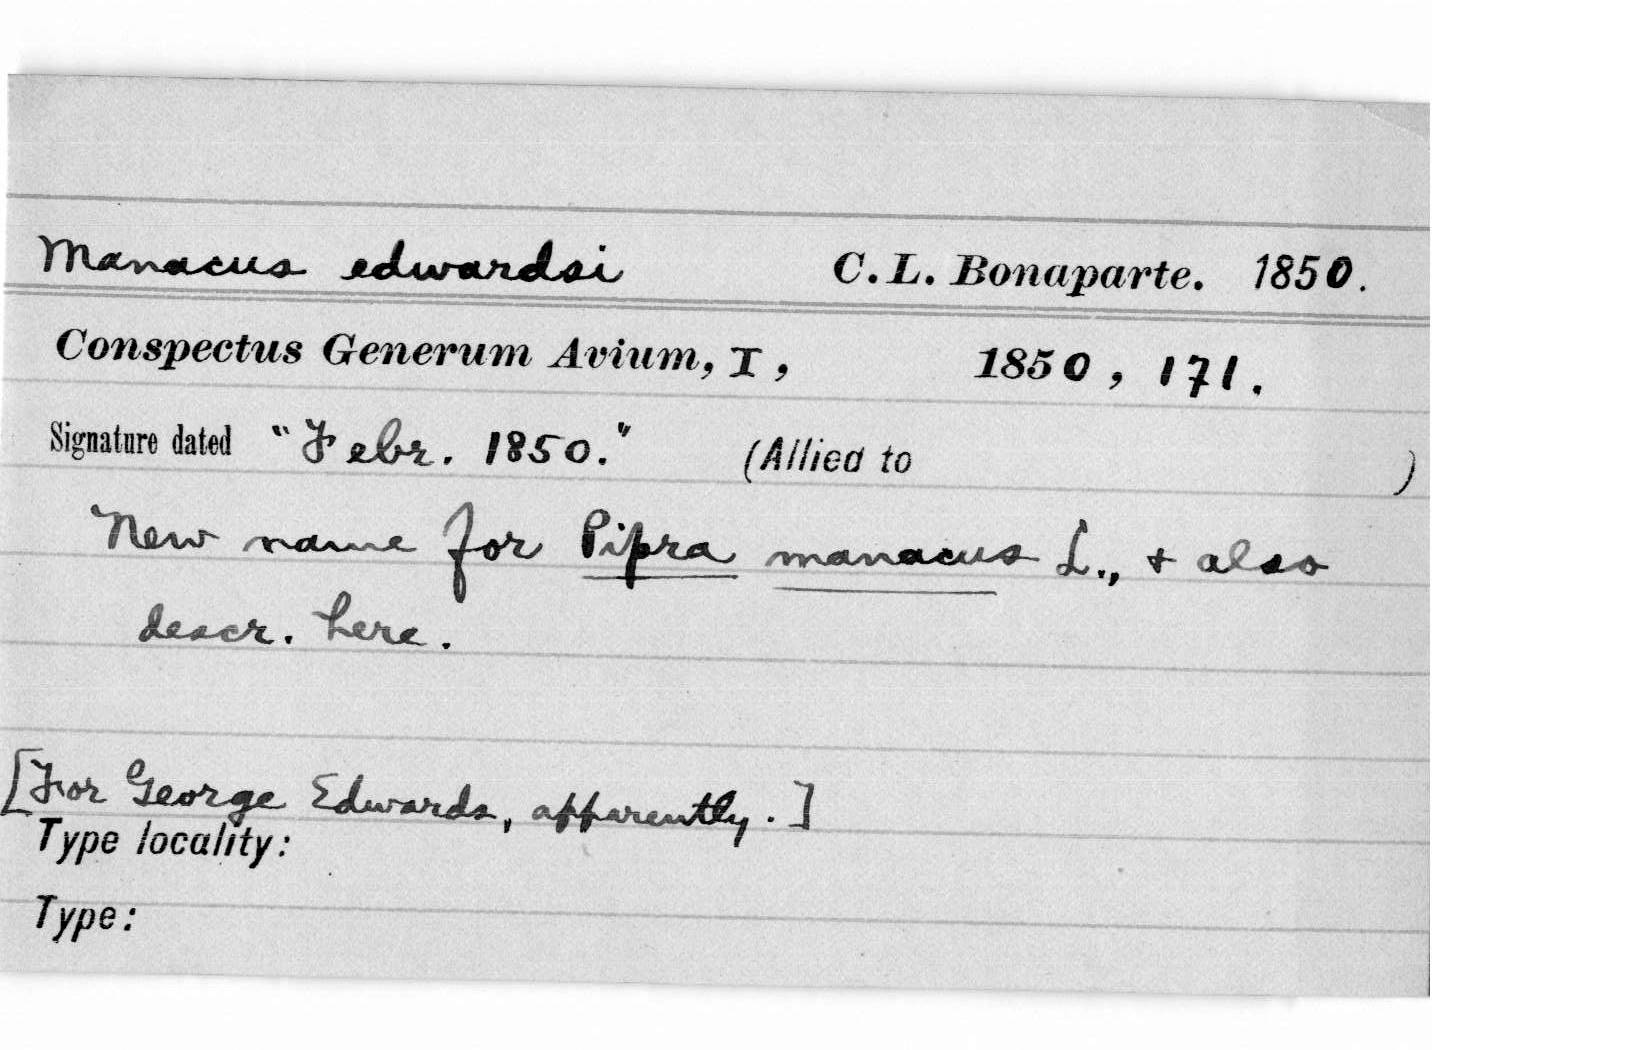 Manacus edwardsi C. L. Bonaparte. 1850.
Conspectus Generum Avium, I, 1850, 171.
Signature dated "Febr. 1850." (Allied to )
New name for Pipra manacus L., & also
descr. here.
[For George Edwards, apparently.]
Type locality:
Type: